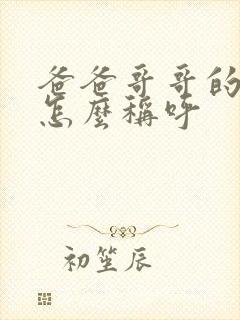 爸爸哥哥的
怎麼稱呼
初笙辰